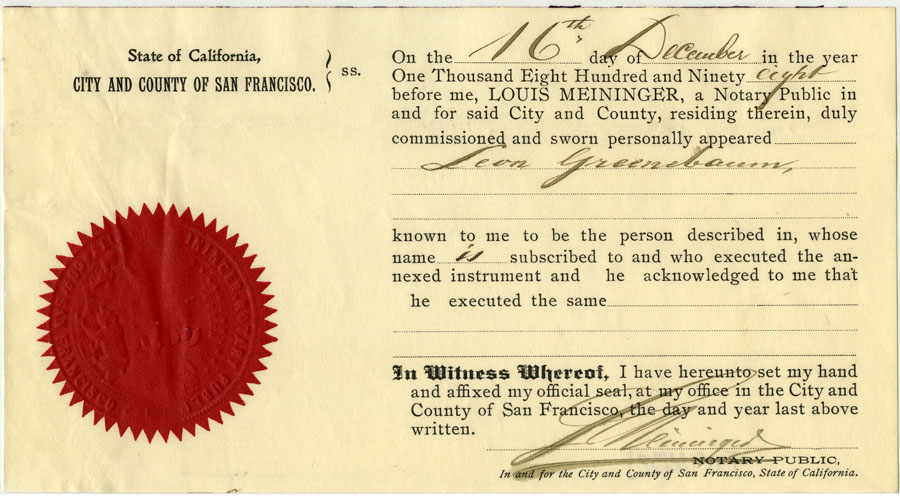 State of California,
CITY AND COUNTY OF SAN FRANCISCO.
ss.
On the 16th day of December in the year
One Thousand Eight Hundred and Ninety eight
before me, LOUIS MEININGER, a Notary Public in
and for said City and County, residing therein, duly
commissioned and sworn personally appeared
Leon Greenebaum,
known to me to be the person described in, whose
name is subscribed to and who executed the an-
nexed instrument and he acknowledged to me that
he executed the same
In Witness Whereof, I have hereunto set my hand
and affixed my official seal, at my office in the City and
County of San Francisco, the day and year last above
written.
L Meininger
NOTARY PUBLIC,
In and for the City and County of San Francisco, State of California.